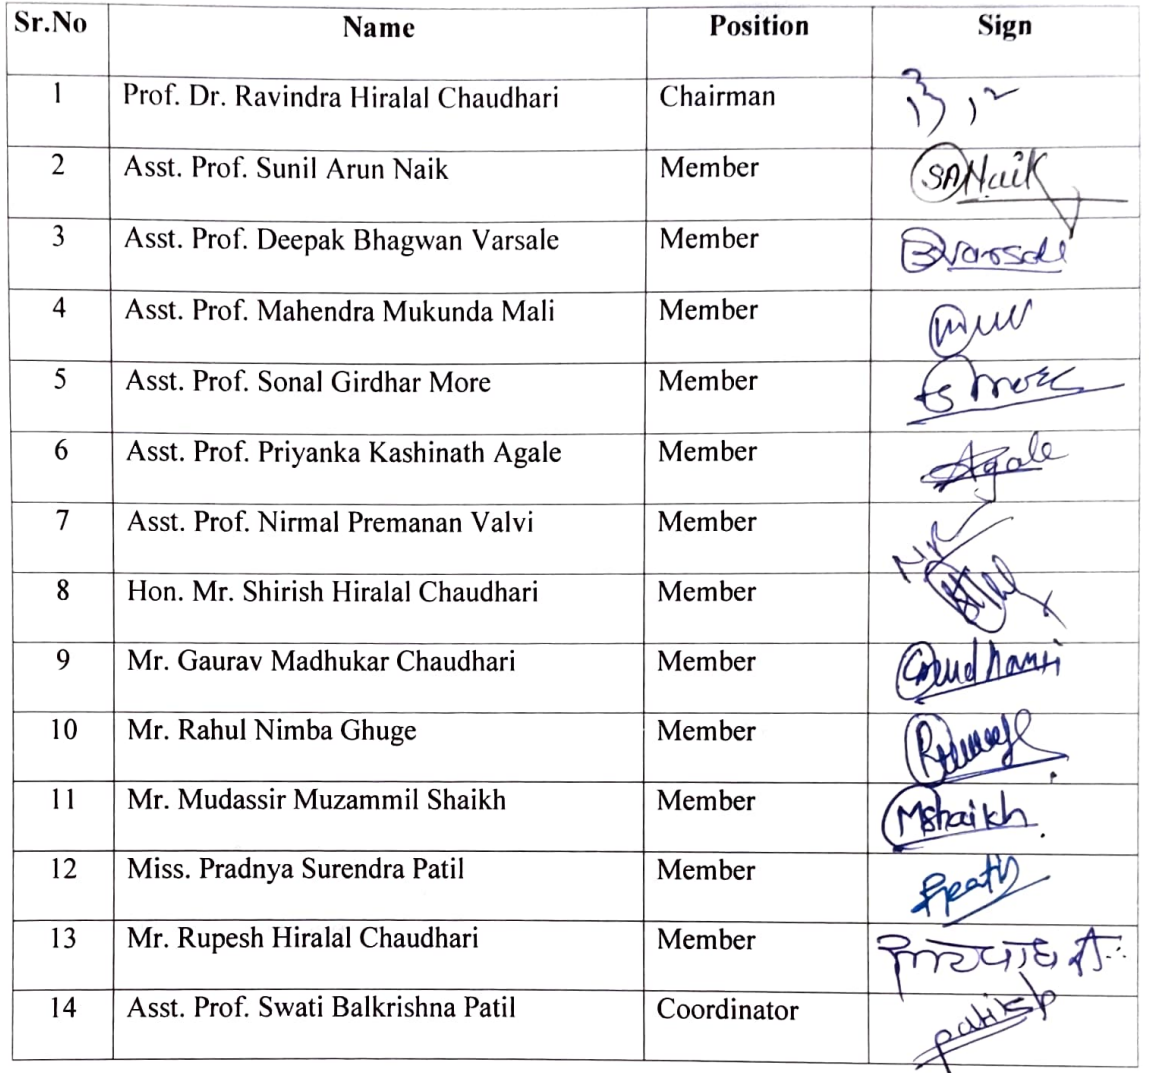 Sr.No Name Position Sign
1 Prof. Dr. Ravindra Hiralal Chaudhari Chairman
2 Asst. Prof. Sunil Arun Naik Member SANaik
3 Asst. Prof. Deepak Bhagwan Varsale Member
4 Asst. Prof. Mahendra Mukunda Mali Member
5 Asst. Prof. Sonal Girdhar More Member
6 Asst. Prof. Priyanka Kashinath Agale Member Agale
7 Asst. Prof. Nirmal Premanan Valvi Member
8 Hon. Mr. Shirish Hiralal Chaudhari Member
9 Mr. Gaurav Madhukar Chaudhari Member
10 Mr. Rahul Nimba Ghuge Member
11 Mr. Mudassir Muzammil Shaikh Member MShaikh
12 Miss. Pradnya Surendra Patil Member
13 Mr. Rupesh Hiralal Chaudhari Member
14 Asst. Prof. Swati Balkrishna Patil Coordinator